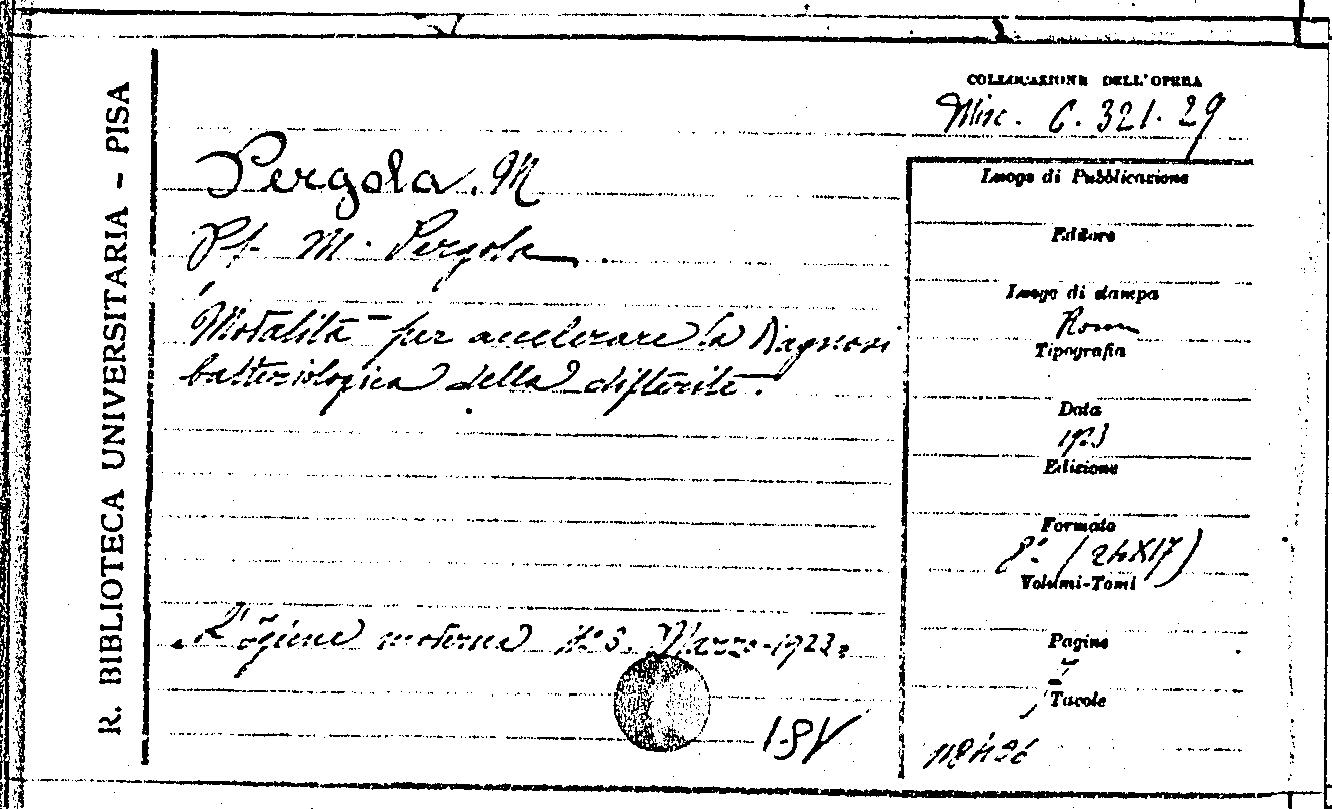 R. BIBLIOTECA UNIVERSITARIA - PISA
COLLOCAZIONE DELL'OPERA
Misc. C. 321. 29
Pergola. M
Pf. M. Pergola
Modalità per accelerare la diagnosi
batteriologica della difterite.
"L'igiene moderna N.º 3. Marzo-1923"
Luogo di Pubblicazione
Editore
Luogo di stampa
Roma
Tipografia
Data
1923
Edizione
Formato
8º (24X17)
Volumi-Tomi
Pagine
7
Tavole